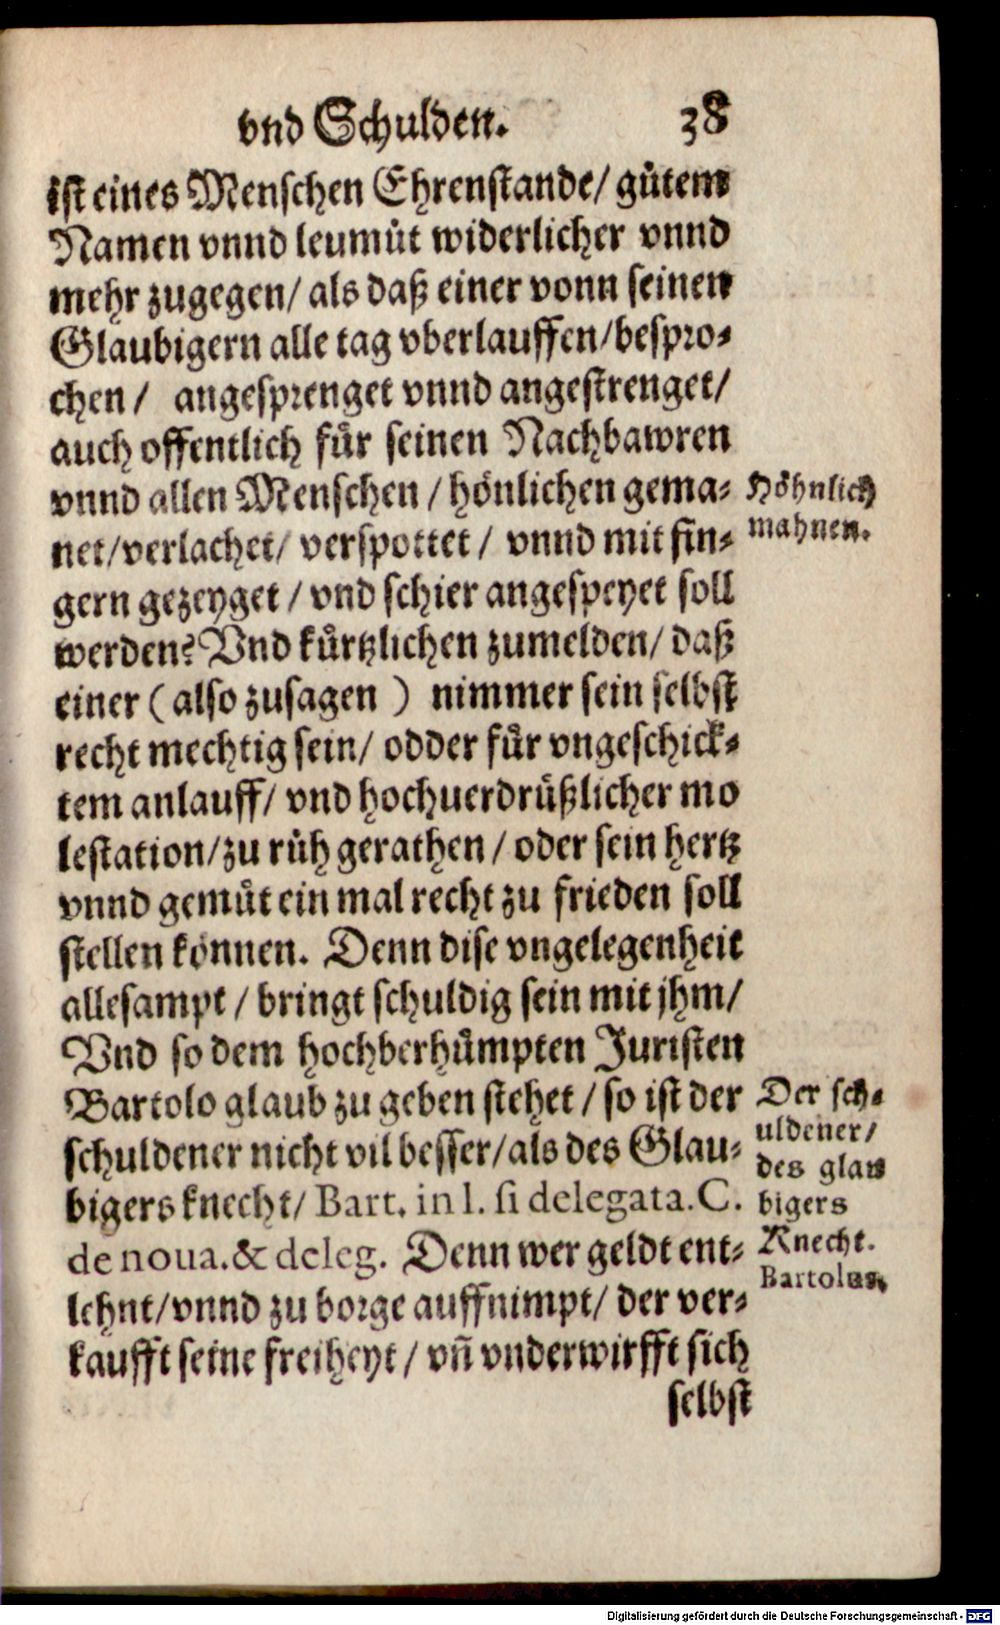 vnd Schulden. 38
ist eines Menschen Ehrenstande/ gůtem
Namen vnnd leumůt widerlicher vnnd
mehr zugegen/ als daß einer vonn seinen
Glaubigern alle tag vberlauffen/bespro-
chen/ angesprenget vnnd angestrenget/
auch offentlich fůr seinen Nachbawren
vnnd allen Menschen / hőnlichen gema-
net/verlachet/ verspottet / vnnd mit fin-
gern gezeyget / vnd schier angespeyet soll
werden? Vnd kůrtzlichen zumelden/ daß
einer ( also zusagen ) nimmer sein selbst
recht mechtig sein/ odder fůr vngeschick-
tem anlauff/ vnd hochuerdrůßlicher mo
lestation/zu růh gerathen / oder sein hertz
vnnd gemůt ein mal recht zu frieden soll
stellen kőnnen. Denn dise vngelegenheit
allesampt / bringt schuldig sein mit jhm/
Vnd so dem hochberhůmpten Juristen
Bartolo glaub zu geben stehet / so ist der
schuldener nicht vil besser/als des Glau-
bigers knecht/ Bart. in l. si delegata. C.
de noua. & deleg. Denn wer geldt ent-
lehnt/vnnd zu borge auffnimpt/ der ver-
kaufft seine freiheyt / vñ vnderwirfft sich
selbst
Hőhnlich
mahnen.
Der sch-
uldener/
des glau
bigers
Knecht.
Bartolus,
Digitalisierung gefördert durch die Deutsche Forschungsgemeinschaft - DFG